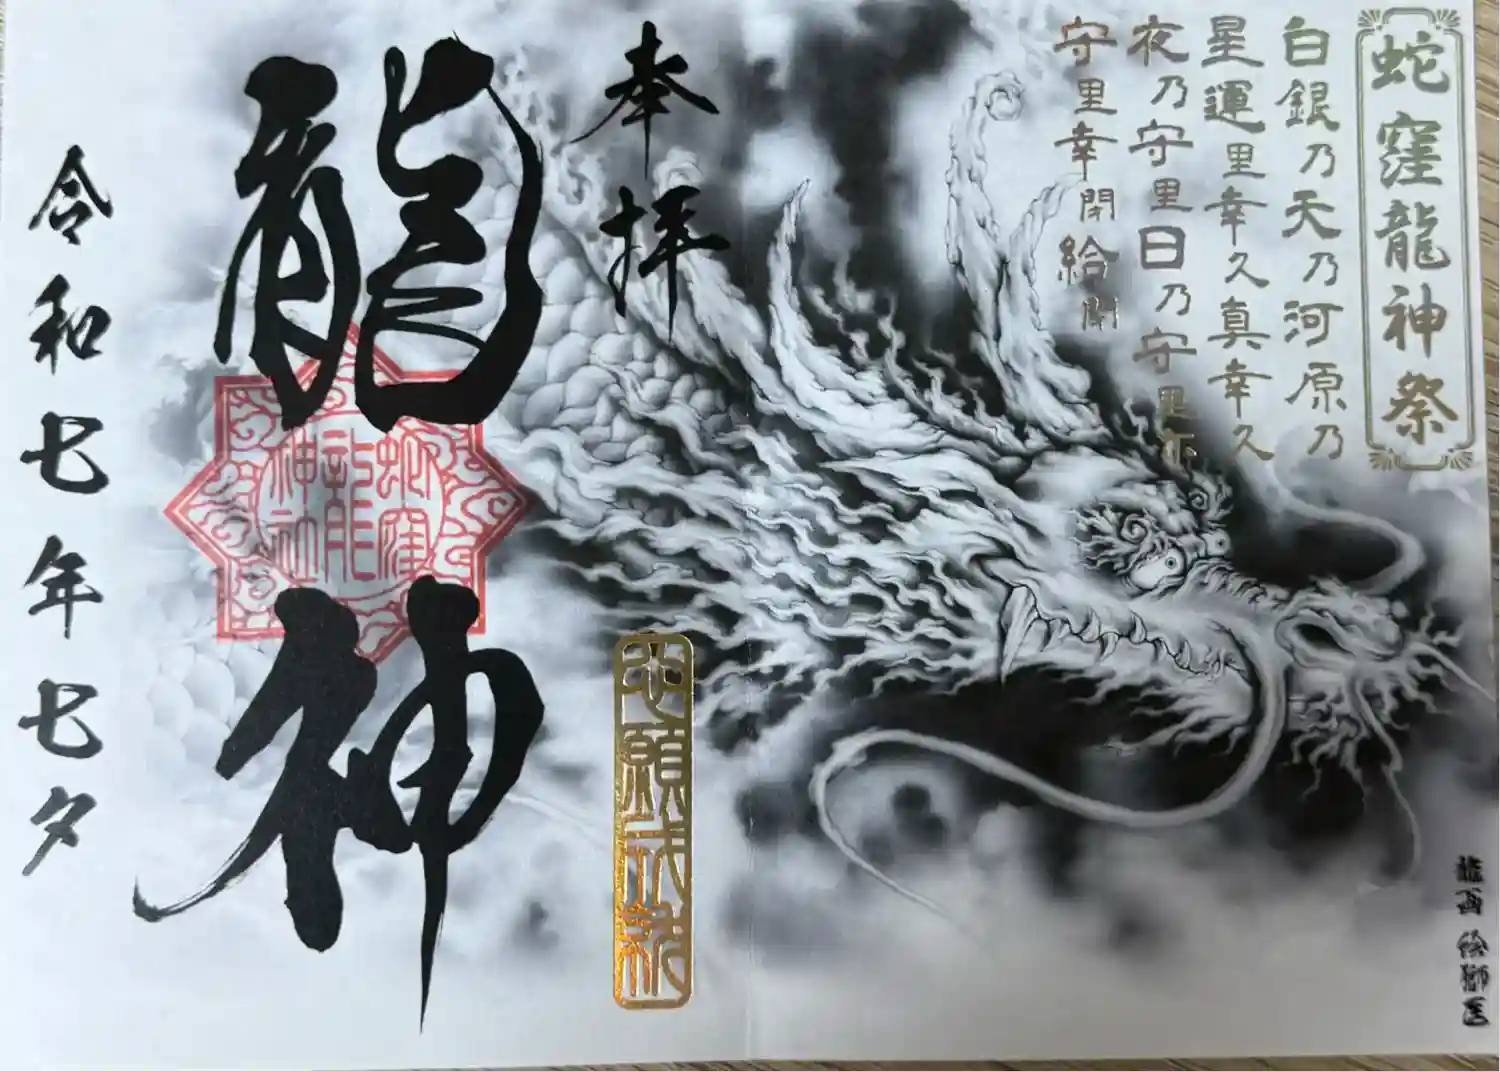 蛇窪龍神祭
白銀乃天乃河原乃
星運里幸久真幸久
夜乃守里日乃守里亦
守里幸閉給閉
奉拝
龍神
蛇窪
龍
神社
心願成就
令和七年七夕
龍画 絵獅